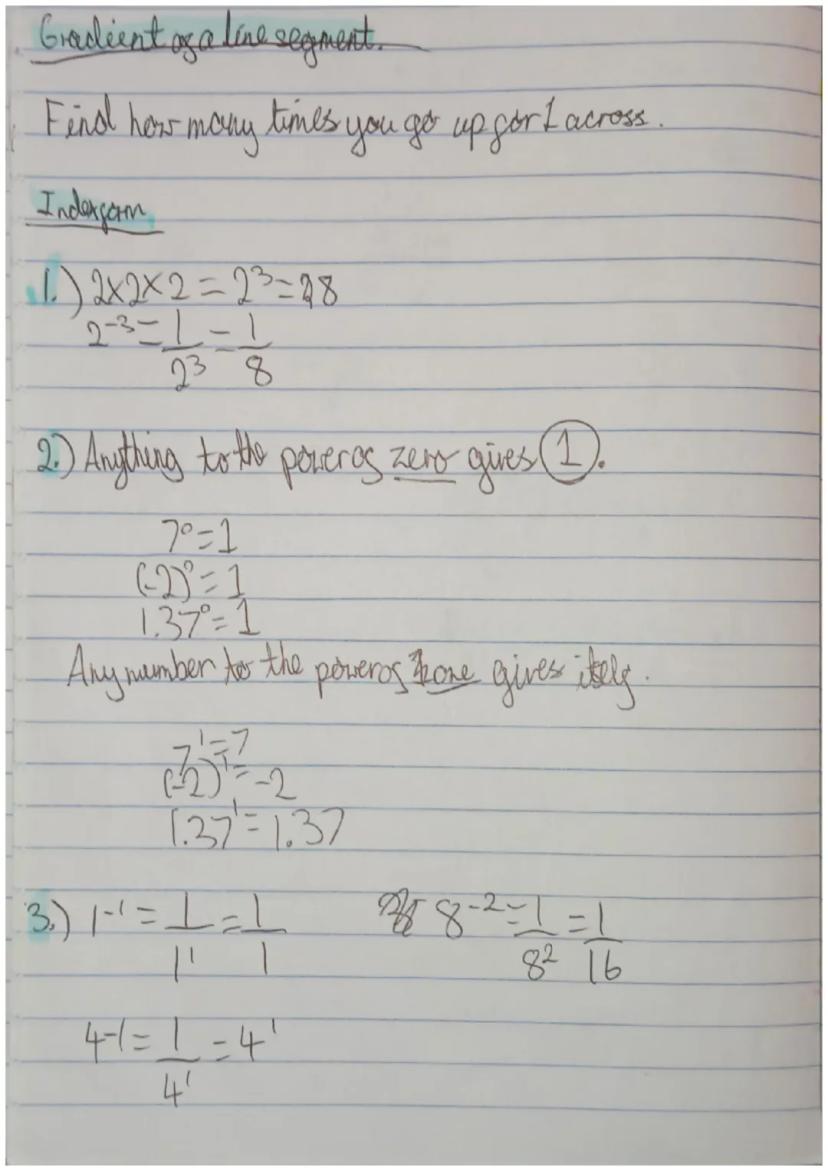 Gradient of a line segment.
Find how many times you go up for 1 across.
Index form
1.) 2×2×2 = 2³ = 8
2⁻³ = 1/2³ = 1/8
2.) Anything to the power of zero gives 1.
7⁰ = 1
(-2)⁰ = 1
1.37⁰ = 1
Any number to the power of one gives itself.
7¹ = 7
(-2)¹ = -2
1.37¹ = 1.37
3.) 1⁻¹ = 1/1¹ = 1/1 8⁻² = 1/8² = 1/16
4⁻¹ = 1/4¹ = 4¹